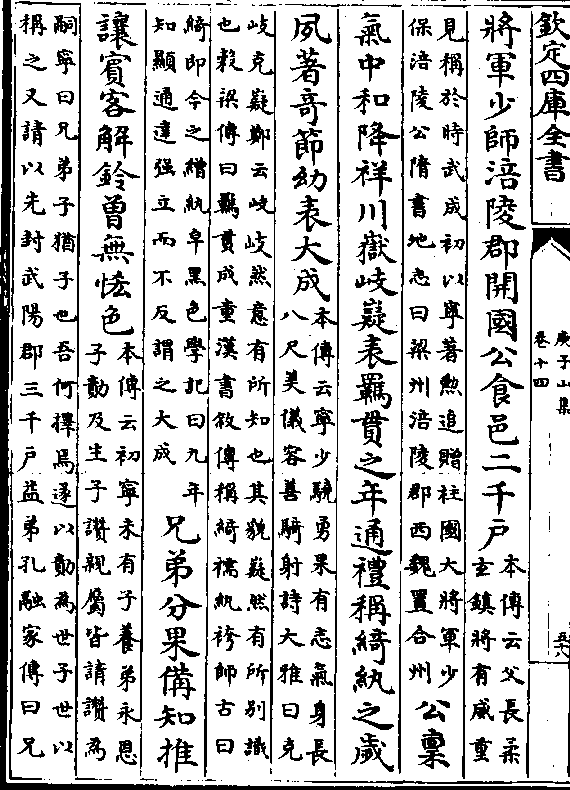 欽定四庫全書
庾子山集
卷十四
將軍少師涪陵郡開國公食邑二千戶
本傳云父長柔
玄鎮將有威重
見稱於時武成初以寧著勲追贈柱國大將軍少
保涪陵公隋書地志曰梁州涪陵郡西魏置合州
公稟
氣中和降祥川嶽岐嶷表羈貫之年通禮稱綺紈之歲
夙著奇節幼表大成
本傳云寧少驍勇果有志氣身長
八尺美儀容善騎射詩大雅曰克
岐克嶷鄭云岐岐然意有所知也其貌嶷然有所别識
也穀梁傳曰羈貫成童漢書敘傳稱綺襦紈袴師古曰
綺即今之繒紈皁黑色學記曰九年
知顯通達强立而不反謂之大成
兄弟分果備知推
讓賓客解鈴曾無恡色
本傳云初寧未有子養弟永恩
子勣及生子讚親屬皆請讚為
嗣寧曰兄弟子猶子也吾何擇焉遂以勣為世子世以
稱之又請以先封武陽郡三千戶益弟孔融家傳曰兄